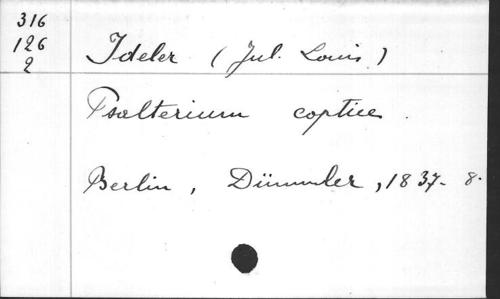 316
126
2
Ideler (Jul. Louis)
Psalterium coptice.
Berlin, Dümmler, 1837. 8.